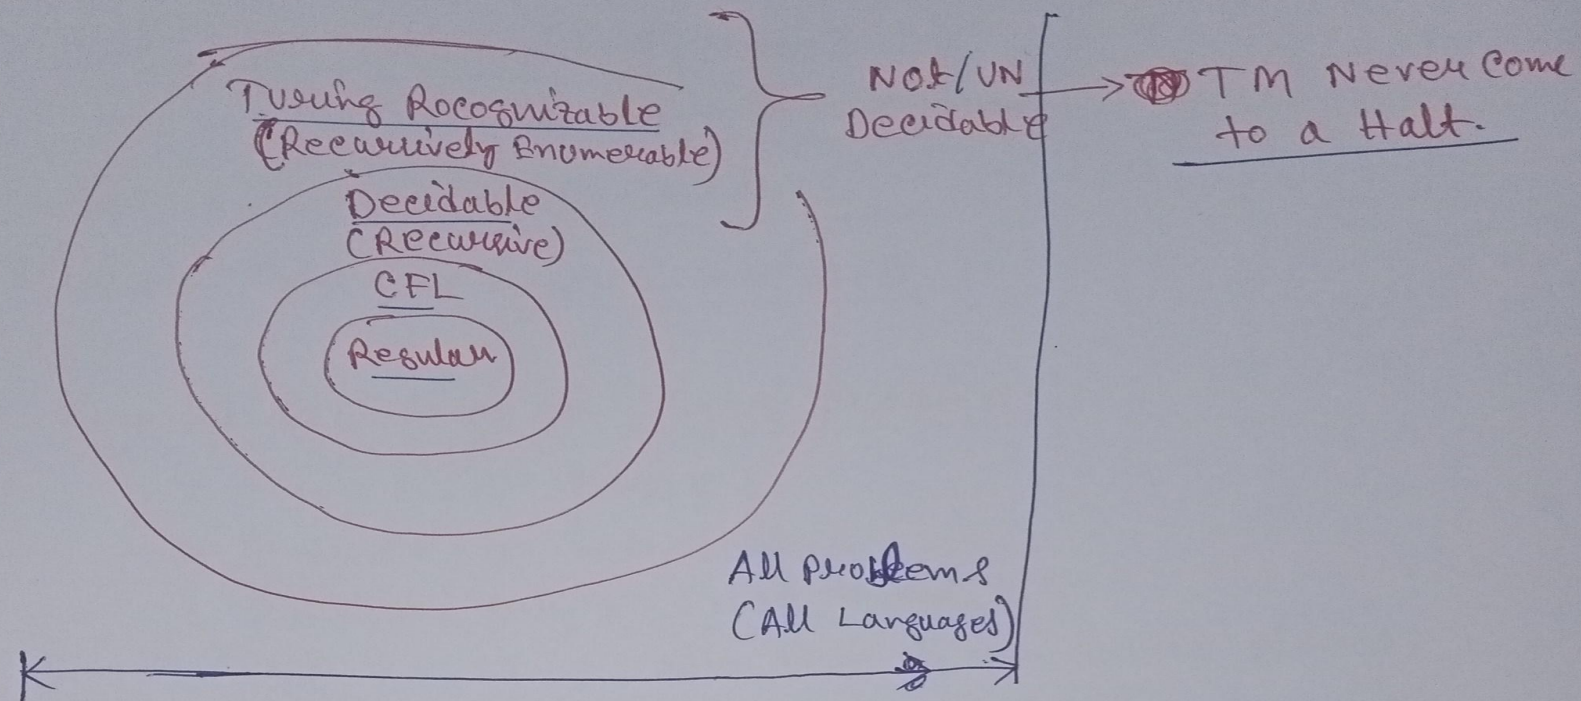 Turing Rocognizable
(Recursively Enumerable)
Decidable
(Recursive)
CFL
Regular
Not/UN
Decidable
TM Never Come
to a Halt.
All problems
(All Languages)